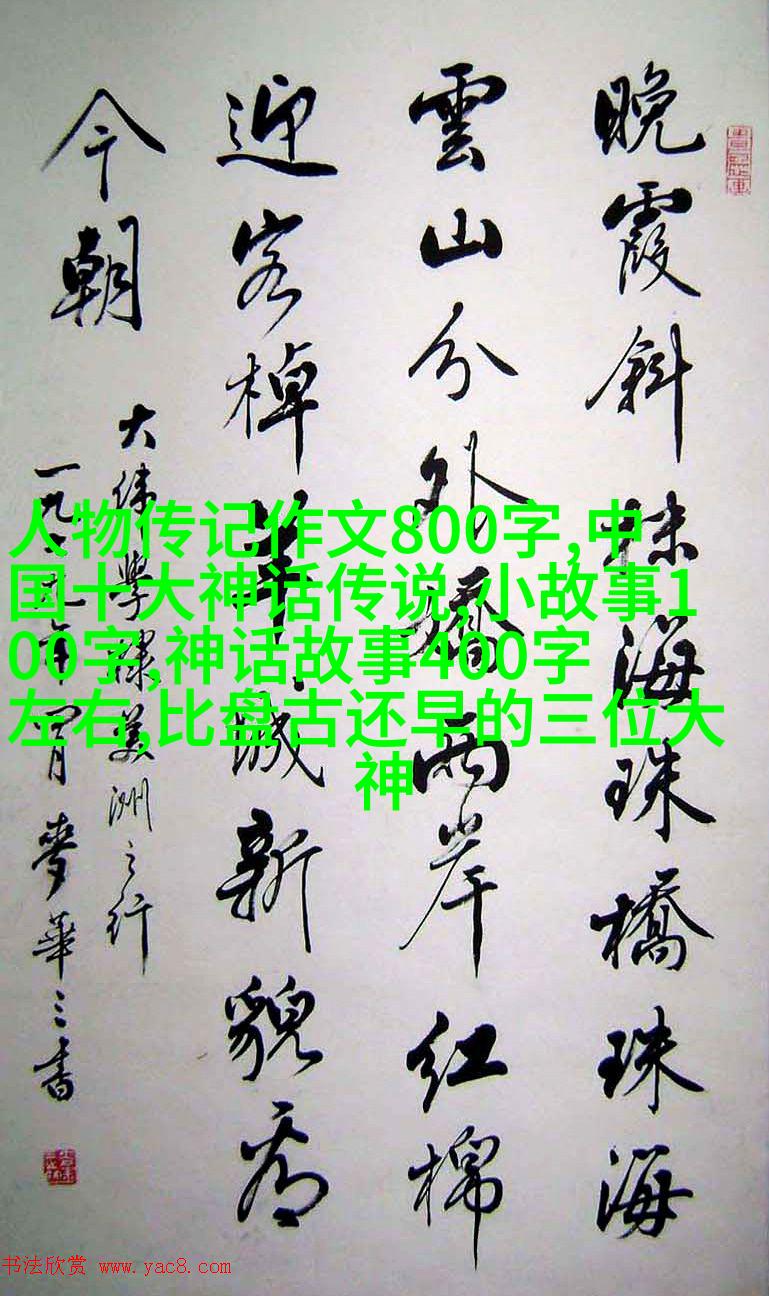 晚霞斜抹海珠橋珠海
雲山分外嬌兩岸红棉
迎客棹羊城新貌看
今朝
大緯學棣美洲之行
一九年月麥華三書
人物传记作文800字,中
国十大神话传说,小故事1
00字,神话故事400字
左右,比盘古还早的三位大
神
书法欣赏 www.yac8.com